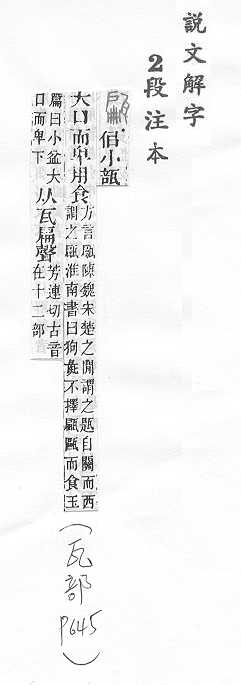 說文解字
2段注本
甂 佀小瓿
大口而卑用食方言甂陳魏宋楚之閒謂之㼵自關而西
謂之甂淮南書曰狗彘不擇甂甌而食玉
篇曰小盆大
口而卑下从瓦扁聲芳連切古音
在十二部
(瓦部 P645)